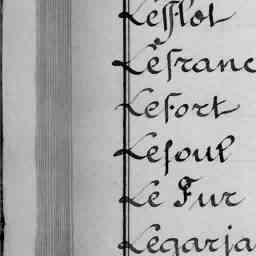 Lefflot
Lefranc
Lefort
Lefoul
Le Fur
Legarja